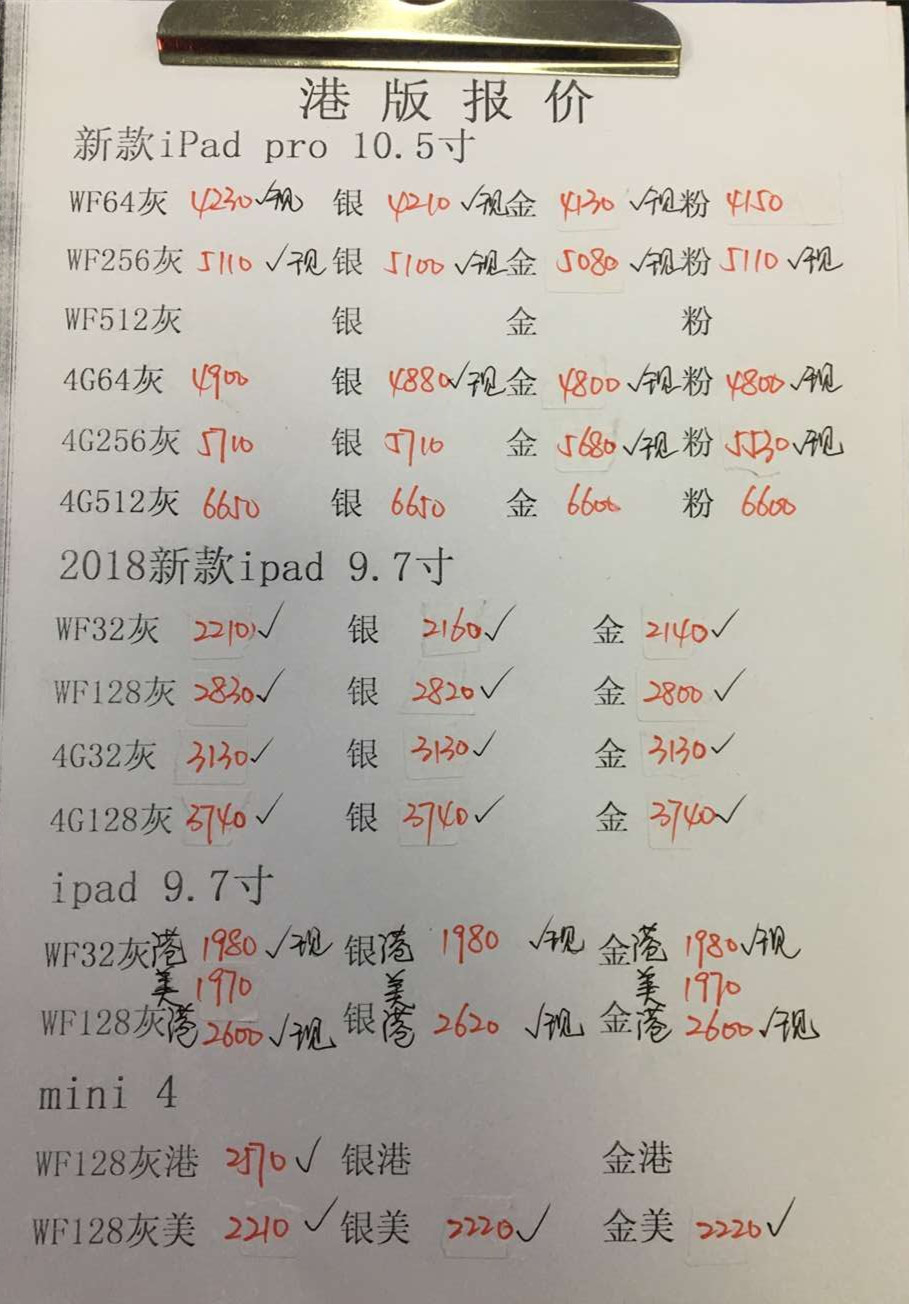 港版报价
新款iPad pro 10.5寸
WF64灰 4230√现 银 4210√现 金 4130√现 粉 4150
WF256灰 5110√现 银 5100√现 金 5080√现 粉 5110√现
WF512灰 银 金 粉
4G64灰 4900 银 4880√现 金 4800√现 粉 4800√现
4G256灰 5710 银 5710 金 5680√现 粉 5530√现
4G512灰 6650 银 6650 金 6600 粉 6600
2018新款ipad 9.7寸
WF32灰 2210√ 银 2160√ 金 2140√
WF128灰 2830√ 银 2820√ 金 2800√
4G32灰 3130√ 银 3130√ 金 3130√
4G128灰 3740√ 银 3740√ 金 3740√
ipad 9.7寸
WF32灰港 1980√现 银港 1980√现 金港 1980√现
美 1970 美 美 1970
WF128灰港 2600√现 银港 2620√现 金港 2600√现
mini 4
WF128灰港 2570√ 银港 金港
WF128灰美 2210√ 银美 2220√ 金美 2220√